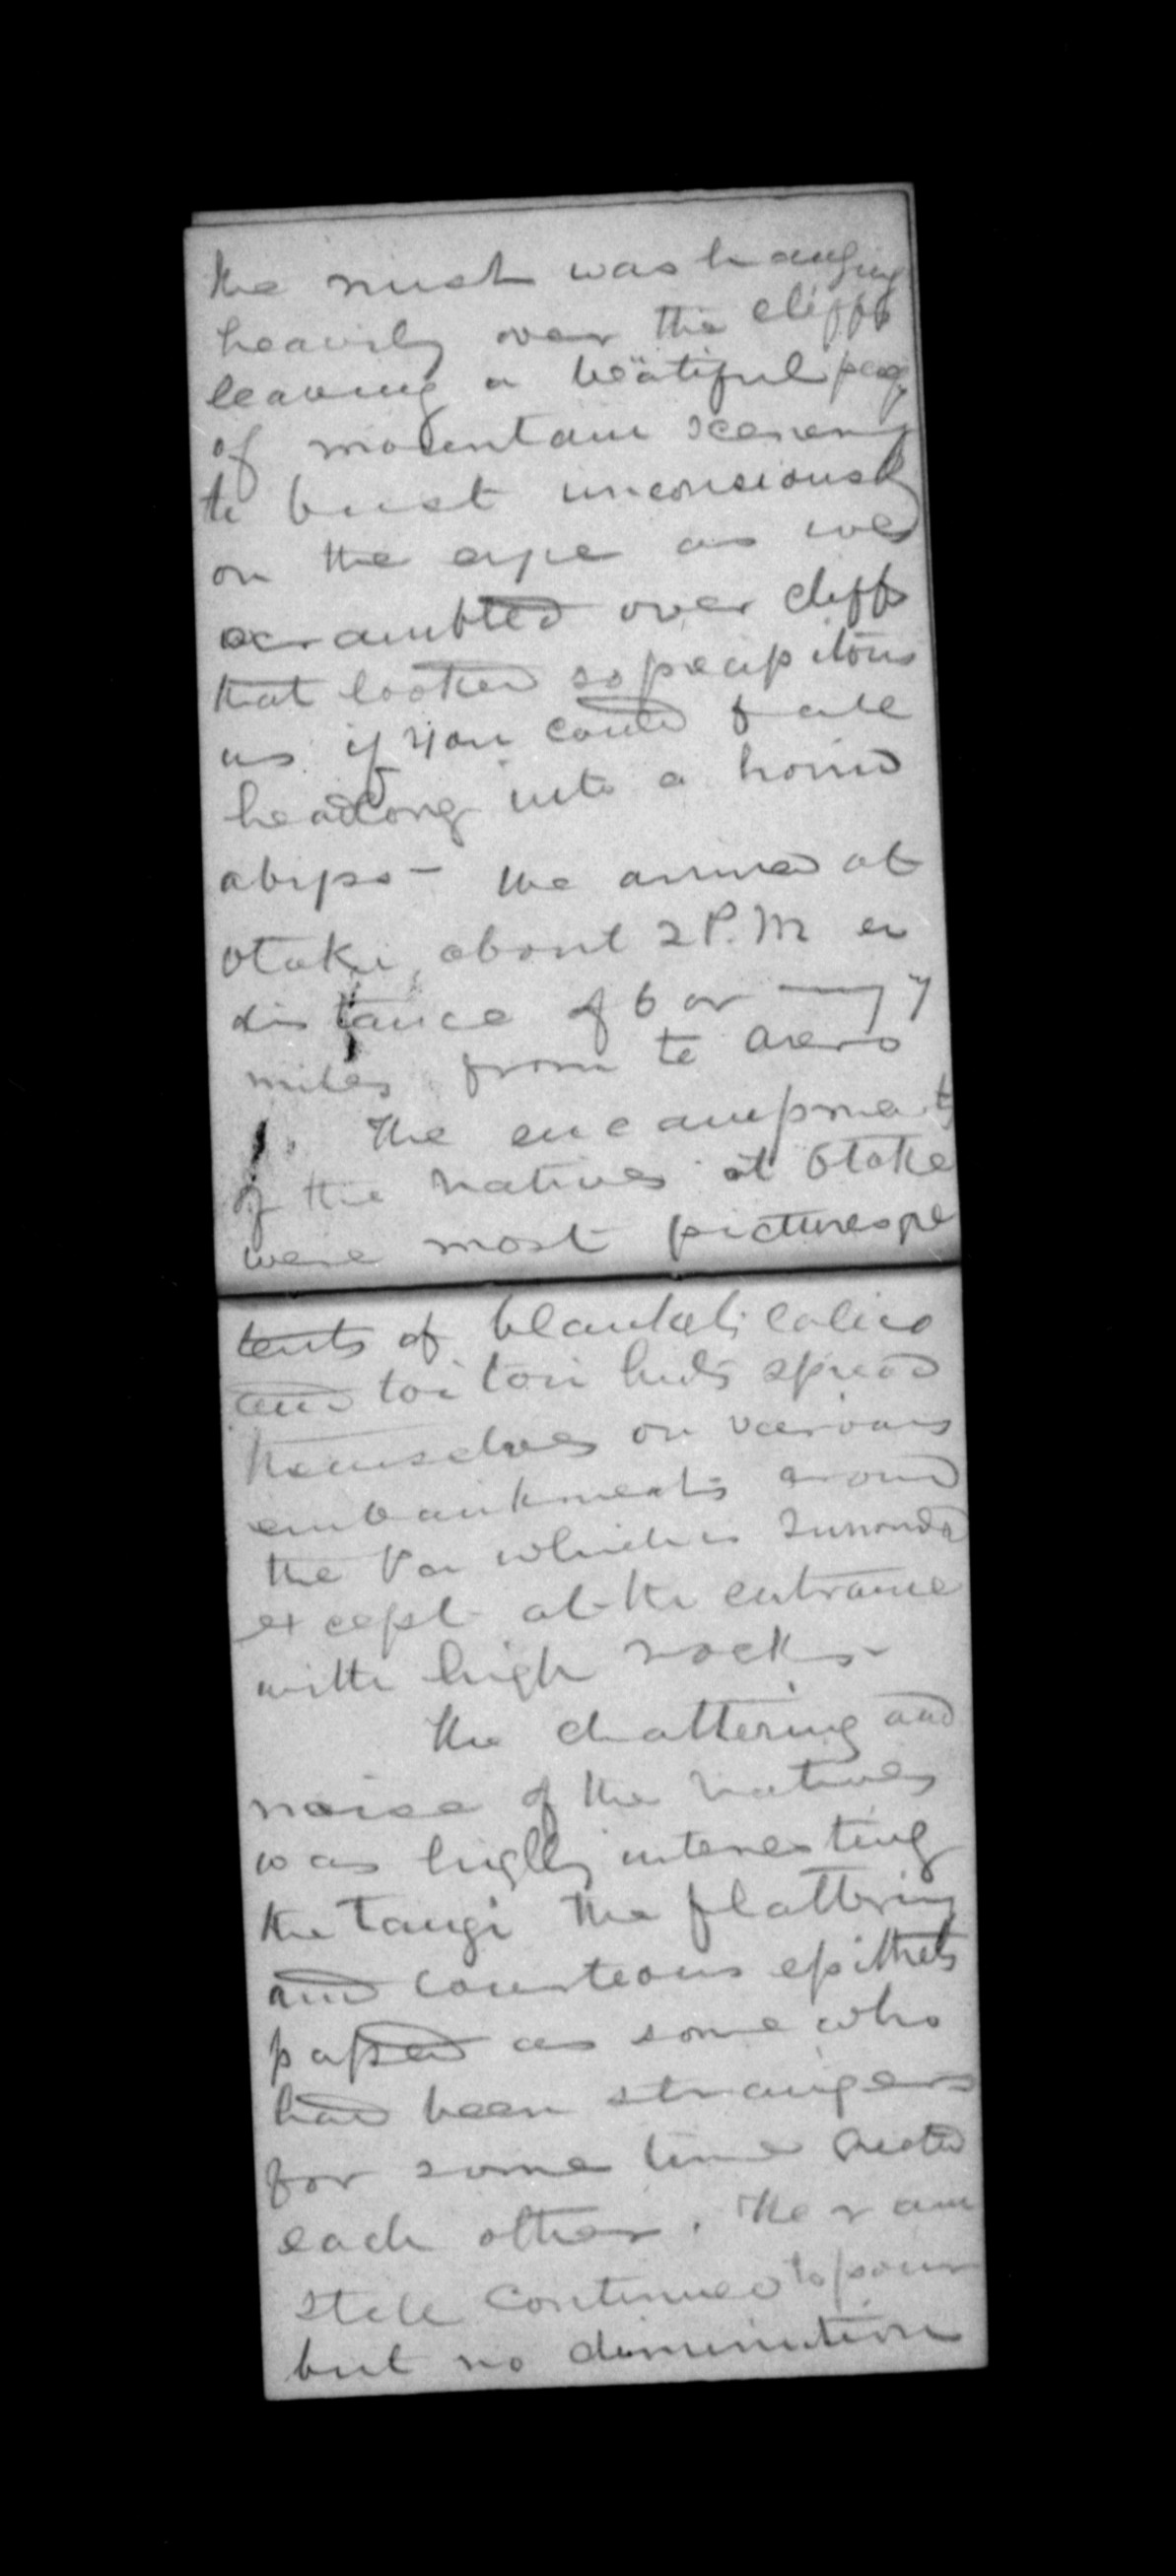 the mist was hanging
heavily over the cliffs
leaving a beatiful peep
of mountain scenery
to burst unconsiously
on the eye as we
scrambled over cliffs
that looked so precipitous
as if you could fall
headlong into a horrid
abyss - We arrived at
Otake about 2 P.M a
distance of 6 or 7
miles from te Arero
The encampments
of the natives at Otake
were most picturesque
tents of blankets, calico
and toi toi huts spread
themselves on various
embankments around
the Pa which is surrounded
except at the entrance
with high rocks -
The chattering and
noise of the natives
was highly interesting
the Tangi the flattering
and courteous epithets
passed as some who
had been strangers
for some time greeted
each other. The rain
still continued to pour
but no diminution